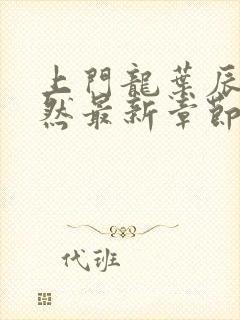 上門龍葉辰
然最新章節
代班